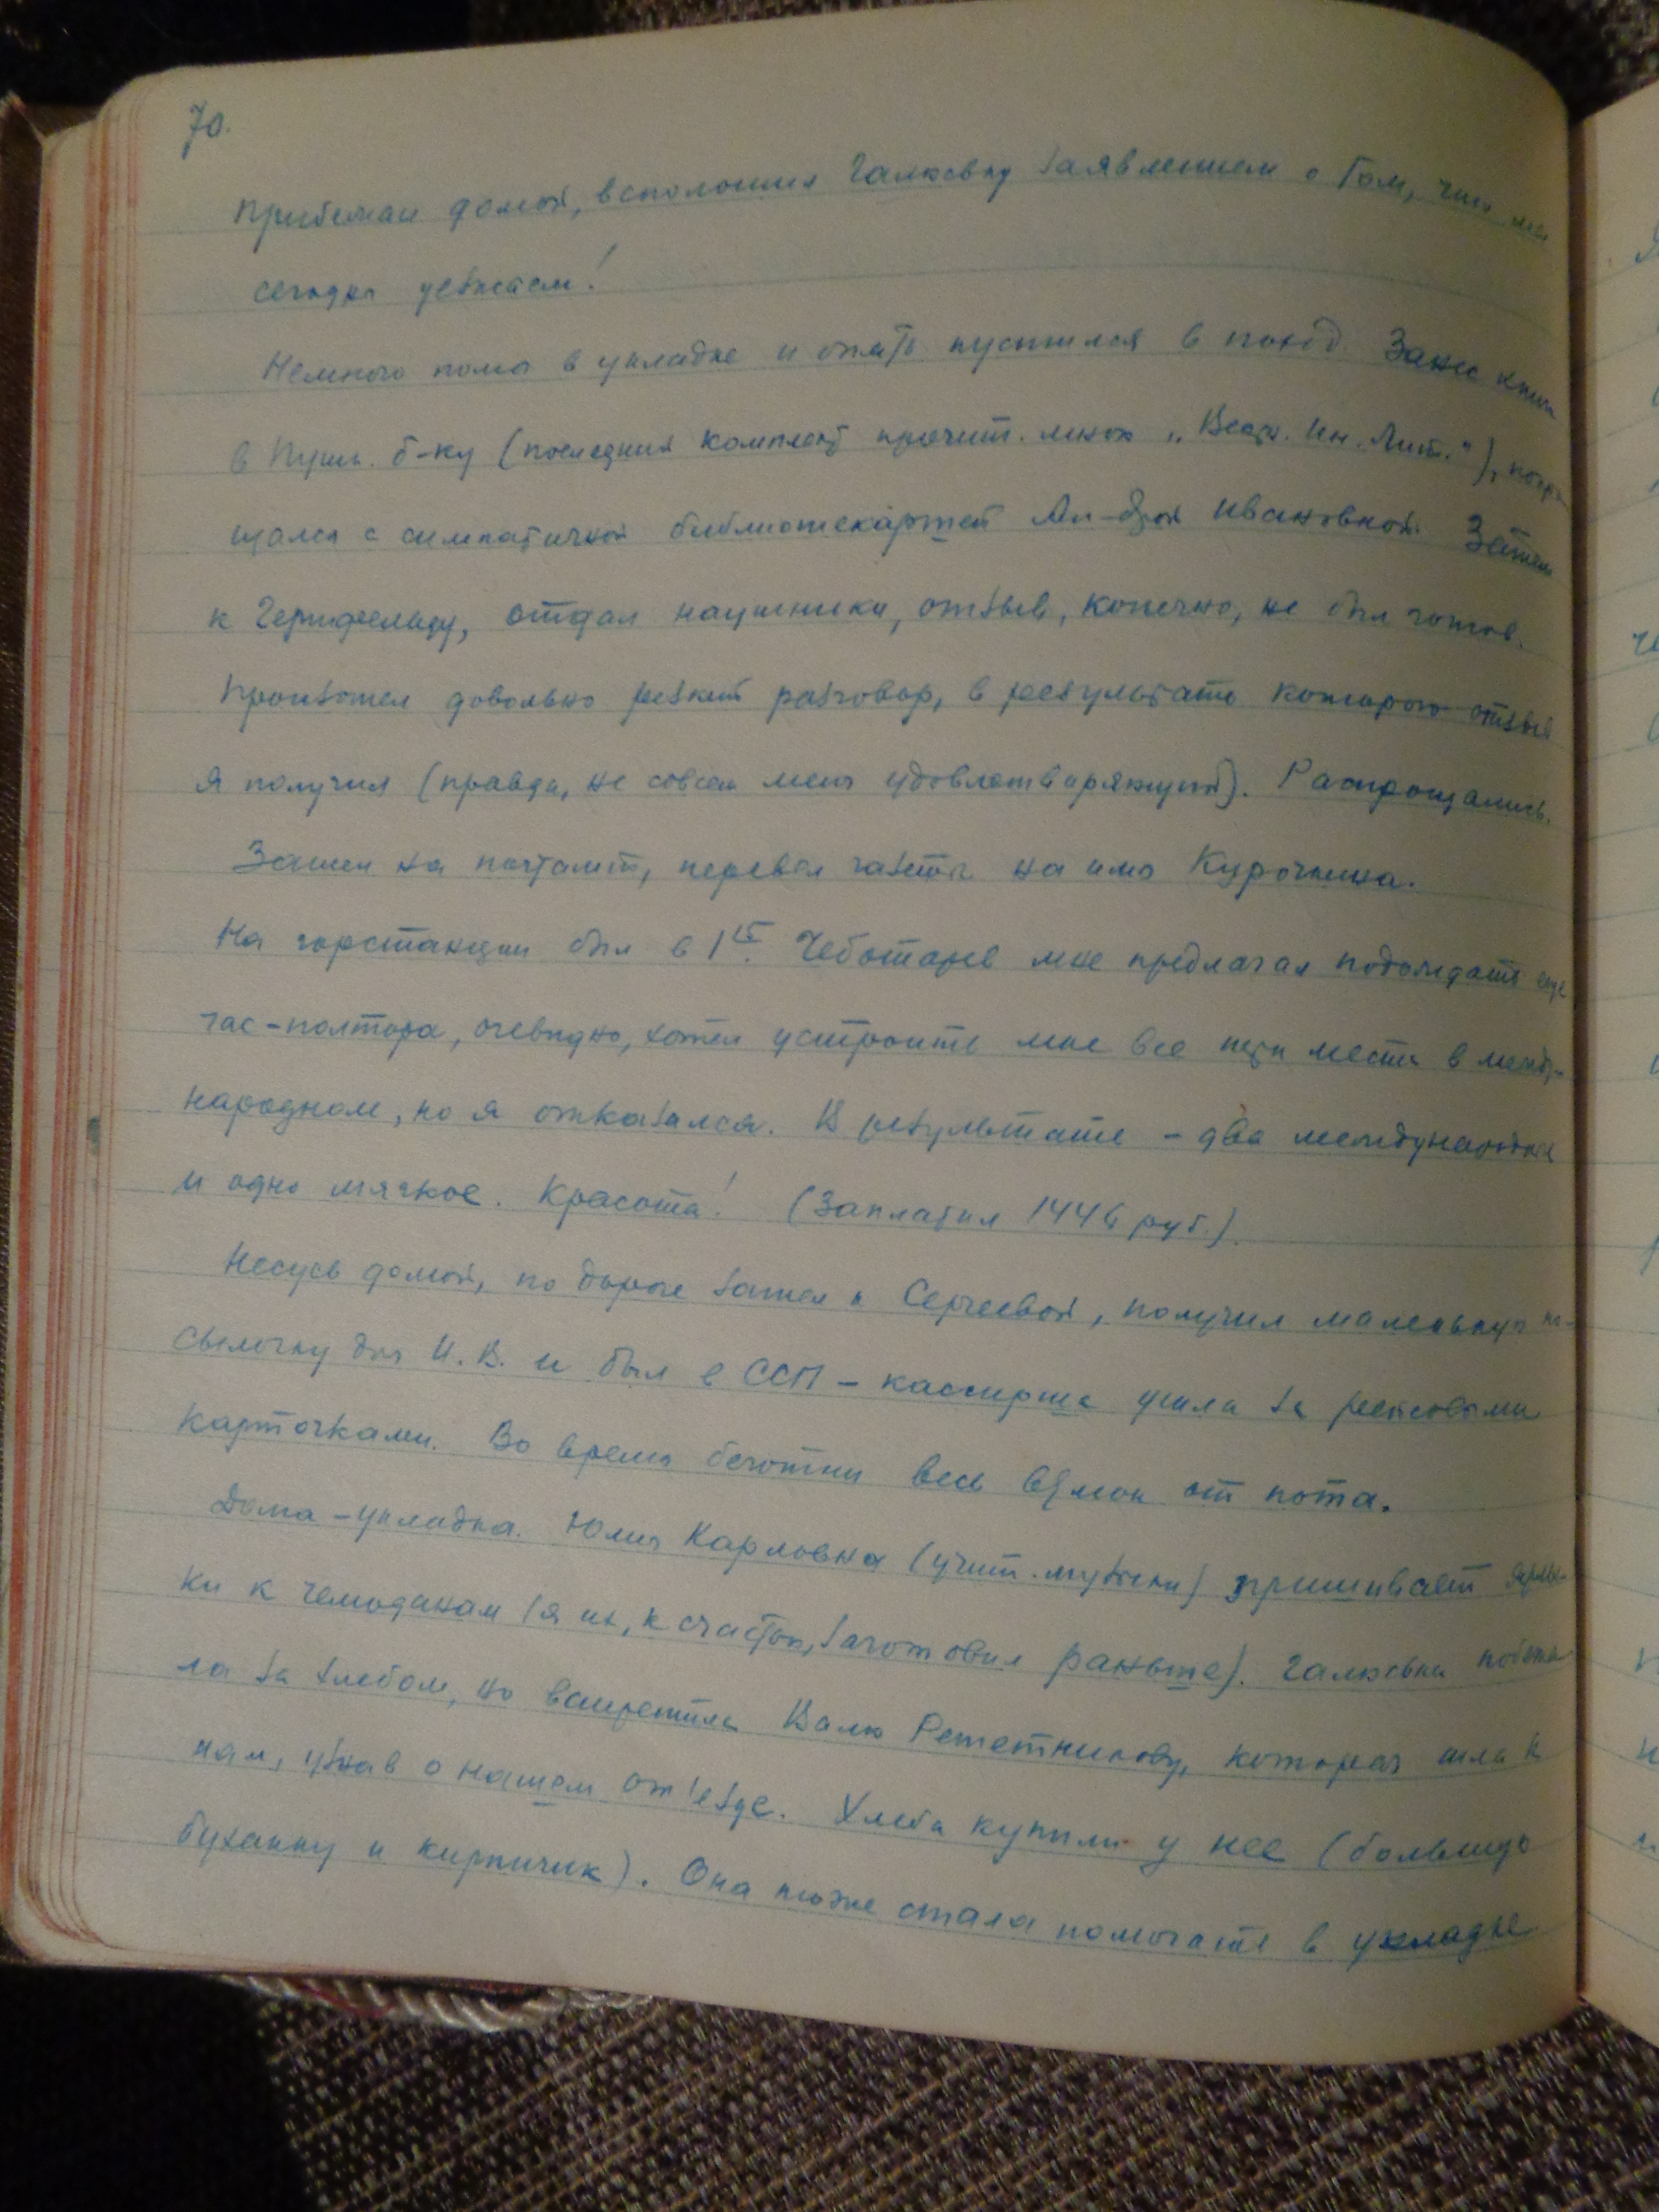 70.
Прибежал домой, всполошил Галюську заявлением о том, что мы
сегодня уезжаем!
Немного помог в укладке и опять пустился в поход. Занес книги
в Пушк. б-ку (последний комплект прочит. мною „Вестн. Ин. Лит."), попро-
щался с симпатичной библиотекаршей Ал-дрой Ивановной. Затем
к Герцфельду, отдал наушники, отзыв, конечно, не был готов.
Произошел довольно резкий разговор, в результате которого отзыв
я получил (правда, не совсем меня удовлетворяющий). Распрощались.
Зашел на почтамт, перевел газеты на имя Курочкина.
На горстанции был в 1 15. Чеботарев мне предлагал подождать еще
час-полтора, очевидно, хотел устроить мне все три места в между-
народном, но я отказался. В результате - два международных
и одно мягкое. Красота! (Заплатил 1446 руб.).
Несусь домой, по дороге зашел к Сергеевой, получил маленькую по-
сылочку для И.В. и был в ССП - кассирша ушла за рейсовыми
карточками. Во время беготни весь взмок от пота.
Дома - укладка. Юлия Карловна (учит. музыки) пришивает ярлы-
ки к чемоданам (я их, к счастью, заготовил раньше). Галюська побежа-
ла за хлебом, но встретила Валю Решетникову, которая шла к
нам, узнав о нашем от'езде. Хлеба купили у нее (большую
буханку и кирпичик). Она тоже стала помогать в укладке